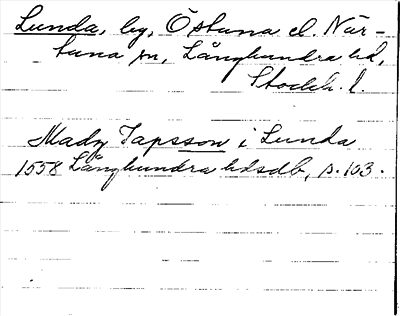 Lunda, by, Östuna el. När-
tuna sn, Långhundra hd,
Stockh. l.
Mady Japsson i Lunda
1558 Långhundra hdsdb, s. 103.